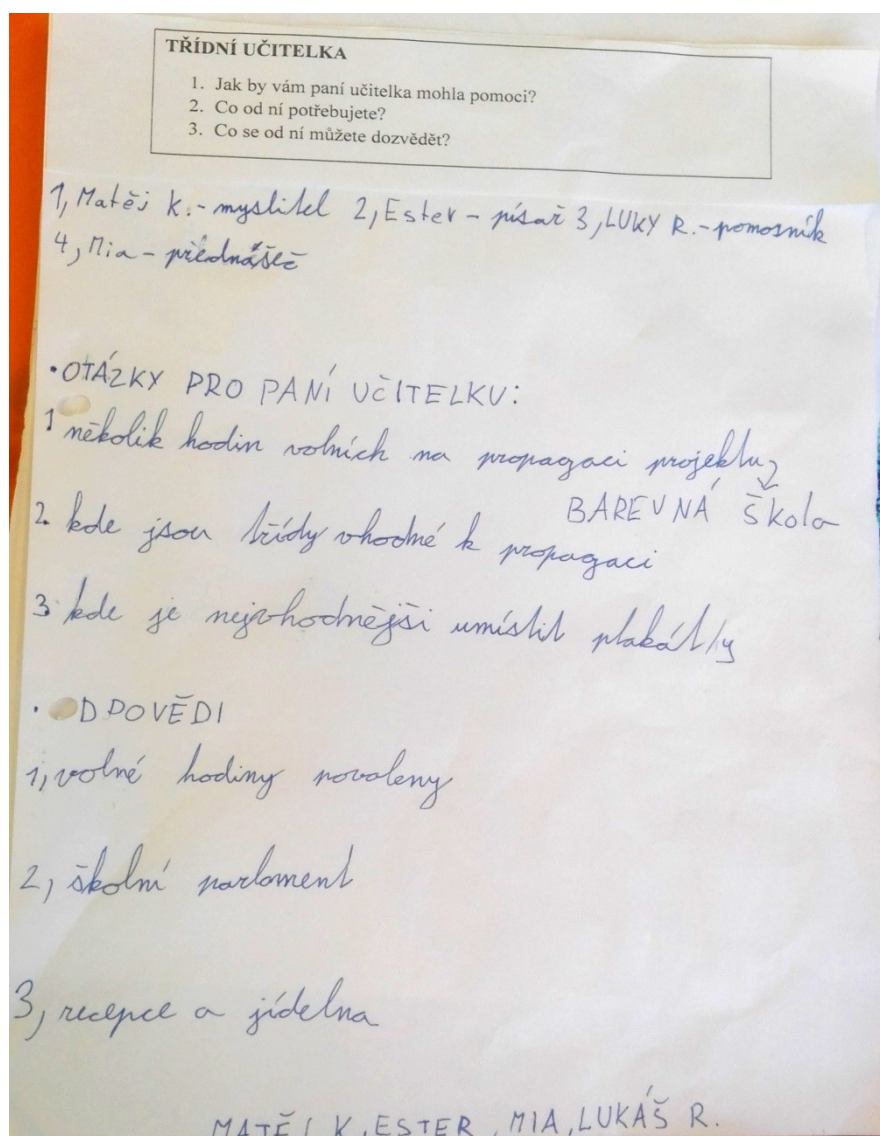 TŘÍDNÍ UČITELKA
1. Jak by vám paní učitelka mohla pomoci?
2. Co od ní potřebujete?
3. Co se od ní můžete dozvědět?
1, Matěj K.- myslitel 2, Ester - písař 3, LUKY R.- pomosník
4, Mia - přednášeč
• OTÁZKY PRO PANÍ UČITELKU:
1 několik hodin volních na propagaci projektu
BAREVNÁ škola
2. kde jsou třídy vhodné k propagaci
3. kde je nejvhodnějši umístit plakátly
• ODPOVĚDI
1, volné hodiny povoleny
2, školní parlament
3, recepce a jídelna
MATĚJ K, ESTER, MIA, LUKÁŠ R.